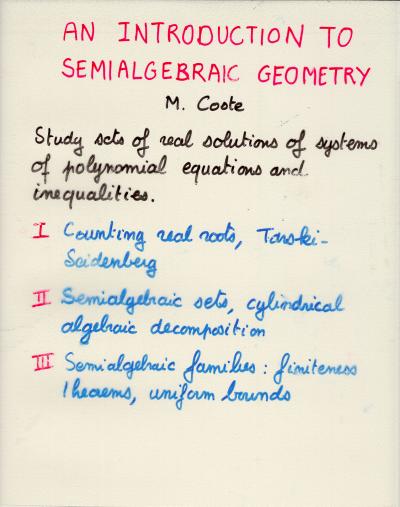 AN INTRODUCTION TO
SEMIALGEBRAIC GEOMETRY
M. Coste
Study sets of real solutions of systems
of polynomial equations and
inequalities.
I Counting real roots, Tarski-
Seidenberg
II Semialgebraic sets, cylindrical
algebraic decomposition
III Semialgebraic families: finiteness
theorems, uniform bounds